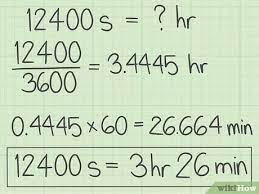 12400 s = ? hr
12400
3600
= 3.4445 hr
0.4445 × 60 = 26.664 min
12400 s = 3 hr 26 min
wikiHow